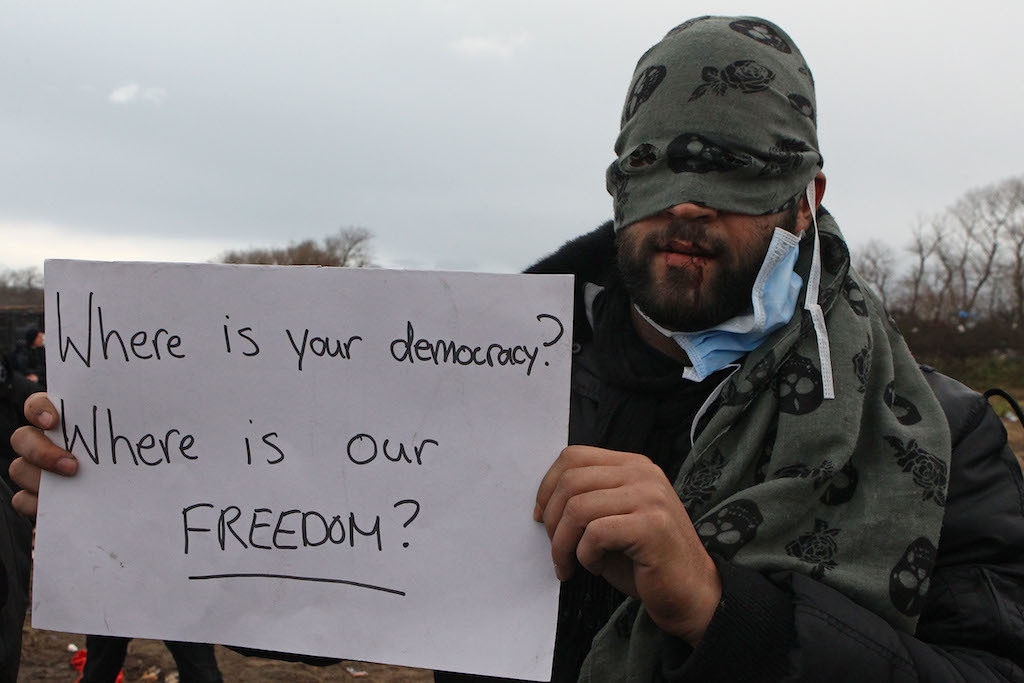 Where is your democracy?
Where is our
FREEDOM?